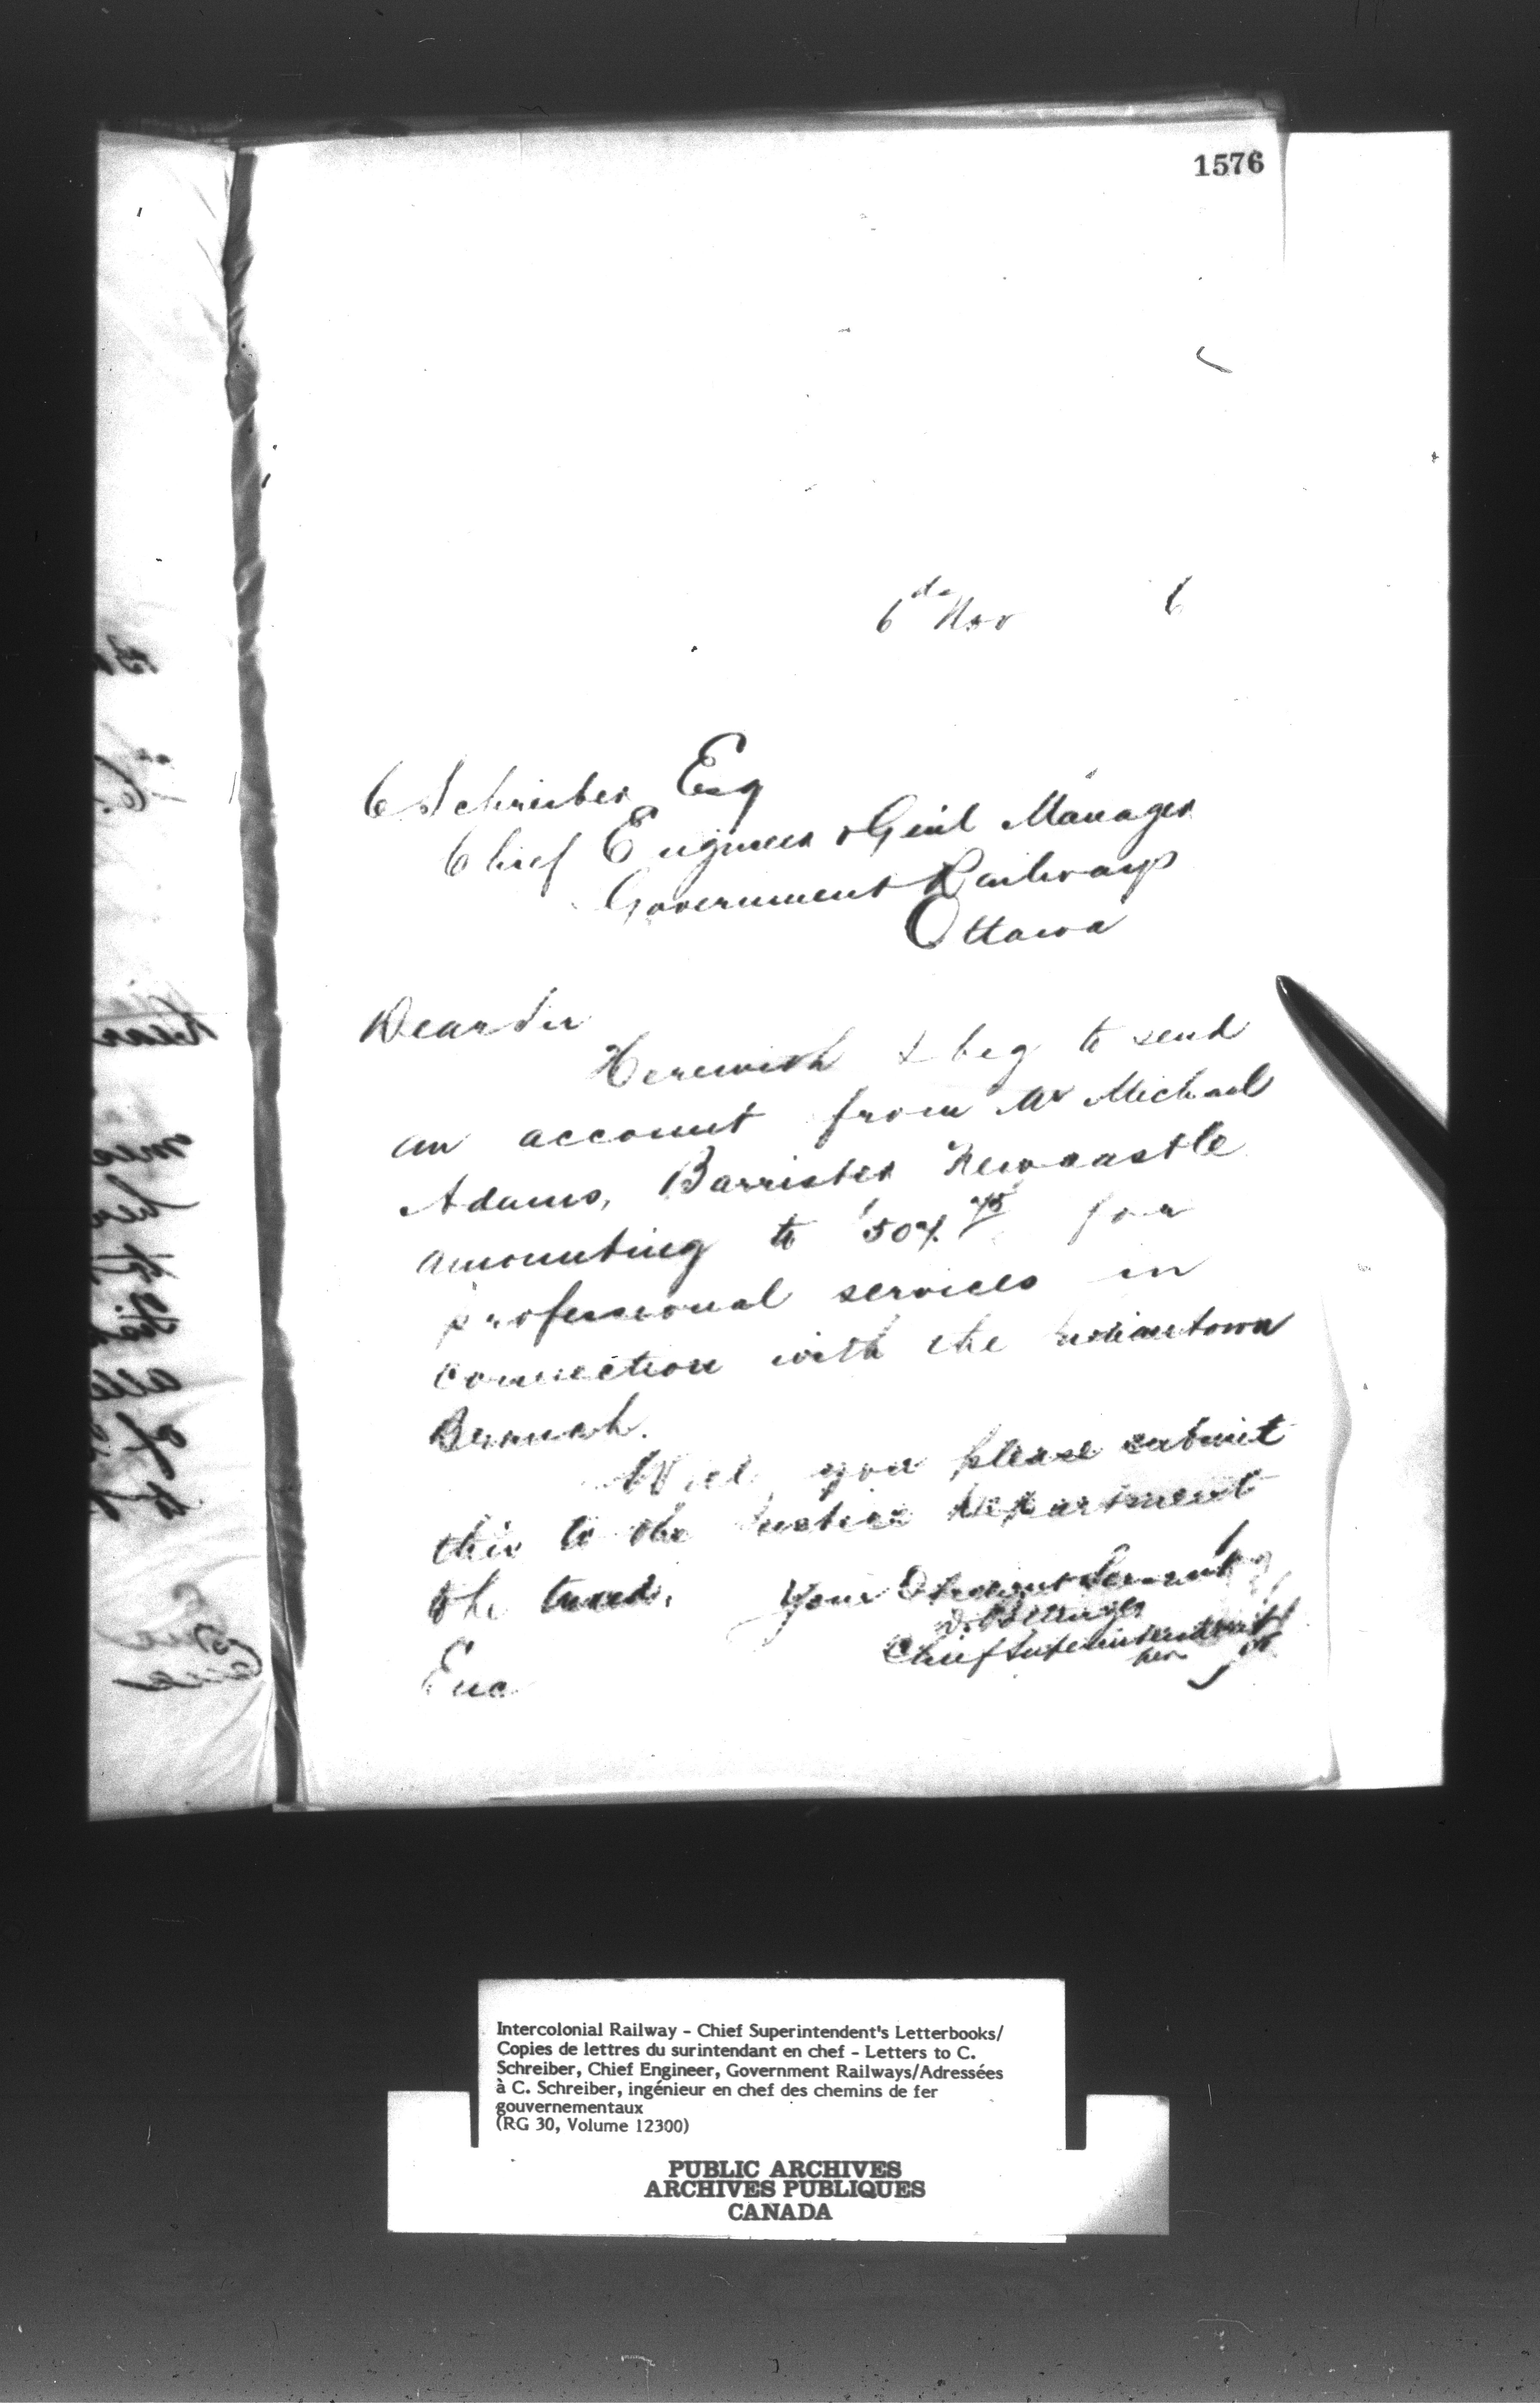 1576
6th Nov 6
C Schreiber Esq
Chief Engineer & Genl Manager
Government Railways
Ottawa
Dear Sir
Herewith I beg to send
an account from Mr Michael
Adams, Barrister Newcastle
amounting to $507.45 for
professional services in
connection with the Indiantown
Branch.
Will you please submit
this to the Justice Department
to be taxed.
Your Obedient Servant
D. Pottinger
Chief Superintendent
Enc
Intercolonial Railway - Chief Superintendent's Letterbooks/
Copies de lettres du surintendant en chef - Letters to C.
Schreiber, Chief Engineer, Government Railways/Adressées
à C. Schreiber, ingénieur en chef des chemins de fer
gouvernementaux
(RG 30, Volume 12300)
PUBLIC ARCHIVES
ARCHIVES PUBLIQUES
CANADA